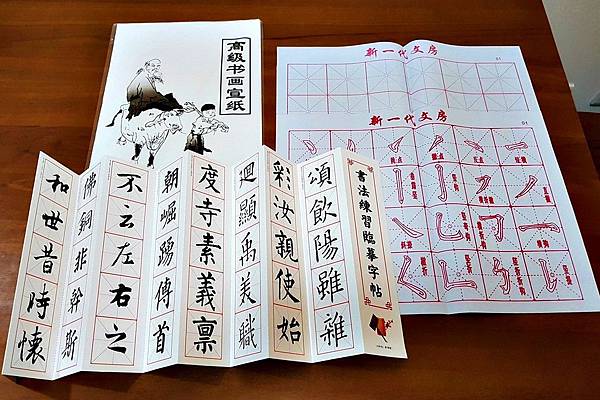 高级书画宣纸
新一代文房
01
新一代文房
01
書法練習臨摹字帖
頌飲陽雖雜
彩汝親使始
迴顯禹美職
度寺素義稟
朝崛踴傳首
不云左右之
佛銅非幹斯
和世昔時懷